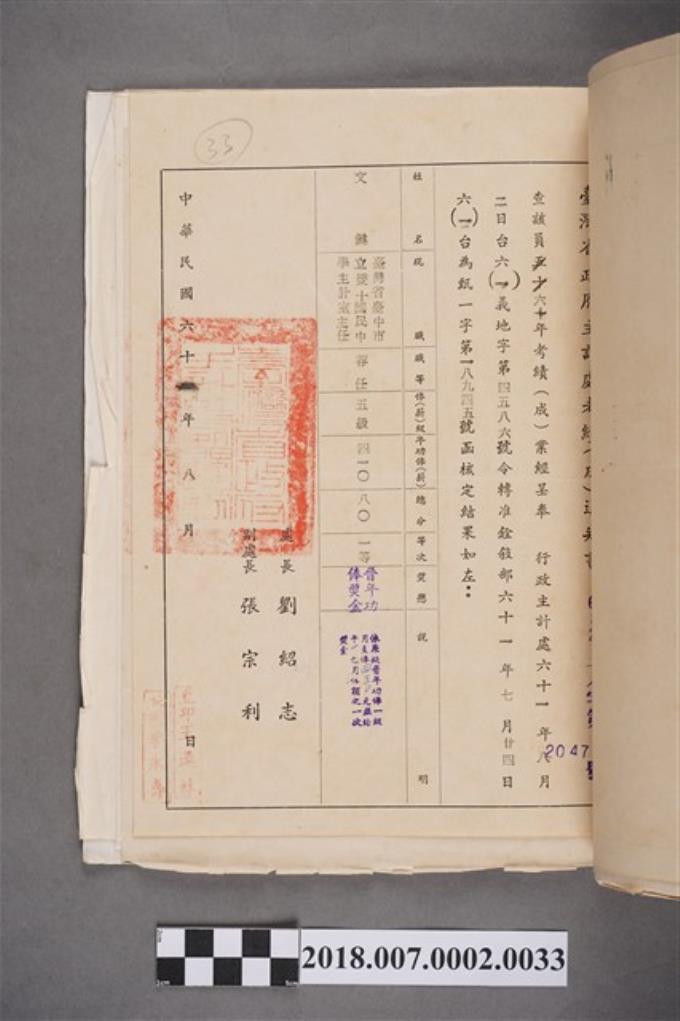 33
臺灣省政府主計處考績(成)通知書
查該員五十六十年考績(成)業經呈奉 行政主計處六十一年八月
二日台六(一)義地字第四五八六號令轉准銓敘部六十一年七月廿四日
六(一)台為甄一字第一八九四五號函核定結果如左:
姓名 現職 職等 俸(薪)級 年功俸(薪) 總分 等次 獎懲 說明
文 臺灣省臺中市立雙十國民中學主計室主任 荐任 五級 四一〇 八〇 一等 晉年功俸獎金
處長 劉紹志
副處長 張宗利
中華民國六十一年八月 日
2047
號
2018.007.0002.0033